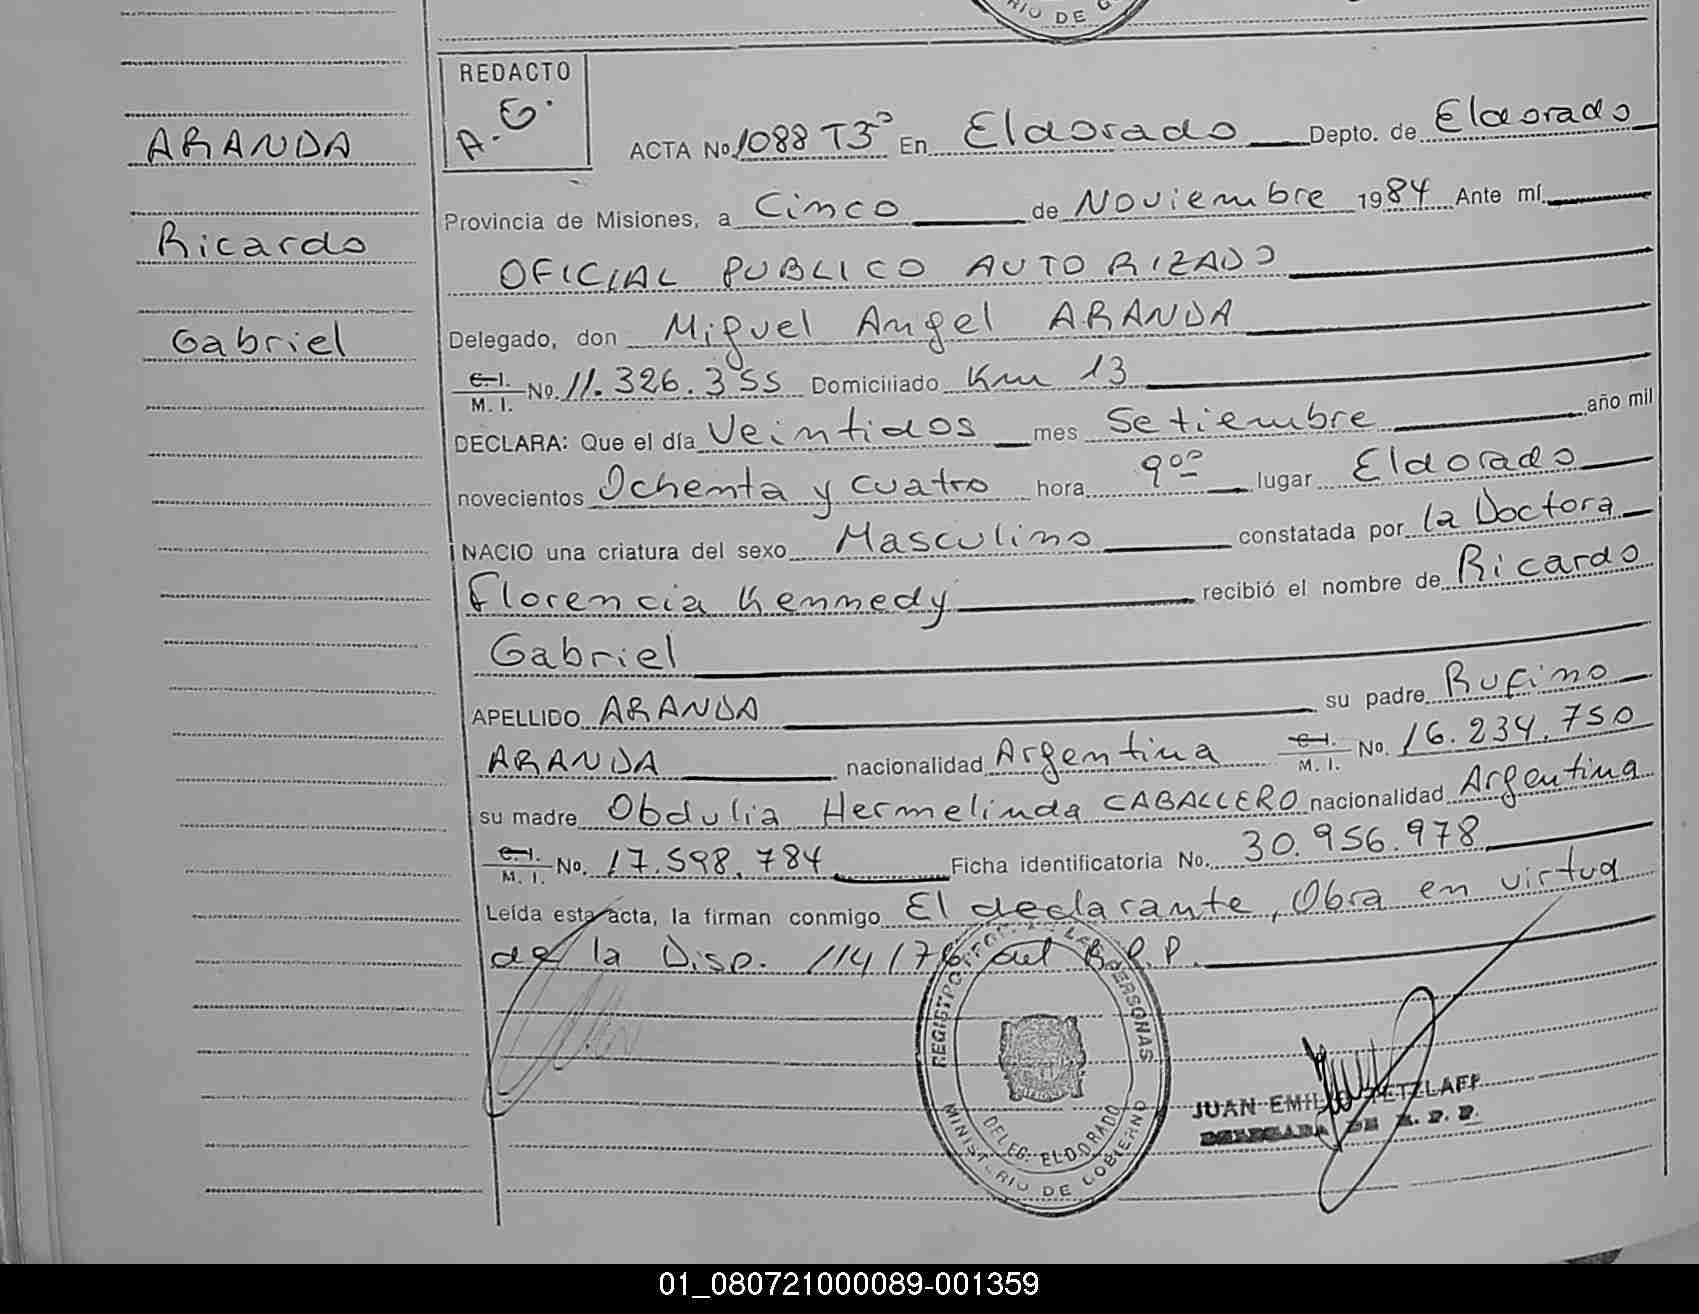 RIO DE G
REDACTO
A.G.
ARANDA
Ricardo
Gabriel
ACTA No. 1088 T3º En Eldorado Depto. de Eldorado
Provincia de Misiones, a Cinco de Noviembre 1984 Ante mí.
OFICIAL PUBLICO AUTORIZADO
Delegado, don Miguel Angel ARANDA
C.I. M.I. No. 11.326.355 Domiciliado Km 13
DECLARA: Que el día Veintidos mes Setiembre año mil
novecientos Ochenta y cuatro hora 9ºº lugar Eldorado
NACIO una criatura del sexo Masculino constatada por la Doctora
Florencia Kennedy recibió el nombre de Ricardo
Gabriel
APELLIDO ARANDA su padre Rufino
ARANDA nacionalidad Argentina C.I. M.I. No. 16.234.750
su madre Obdulia Hermelinda CABALLERO nacionalidad Argentina
C.I. M.I. No. 17.598.784 Ficha identificatoria No. 30.956.978
Leída esta acta, la firman conmigo El declarante, Obra en virtud
de la Disp. 114/76 del R.P.P.
REGISTRO PERSONAS
DELEG. ELDORADO
MINISTERIO DE GOBIERNO
JUAN EMILIO RETZLAFF
DE R. P. P.
01_080721000089-001359